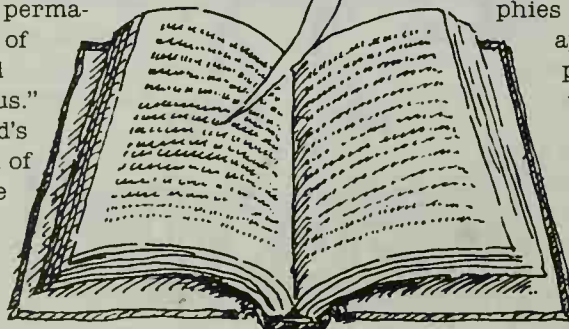 perma-
of
us.”
d's
of
e
phies
a
p